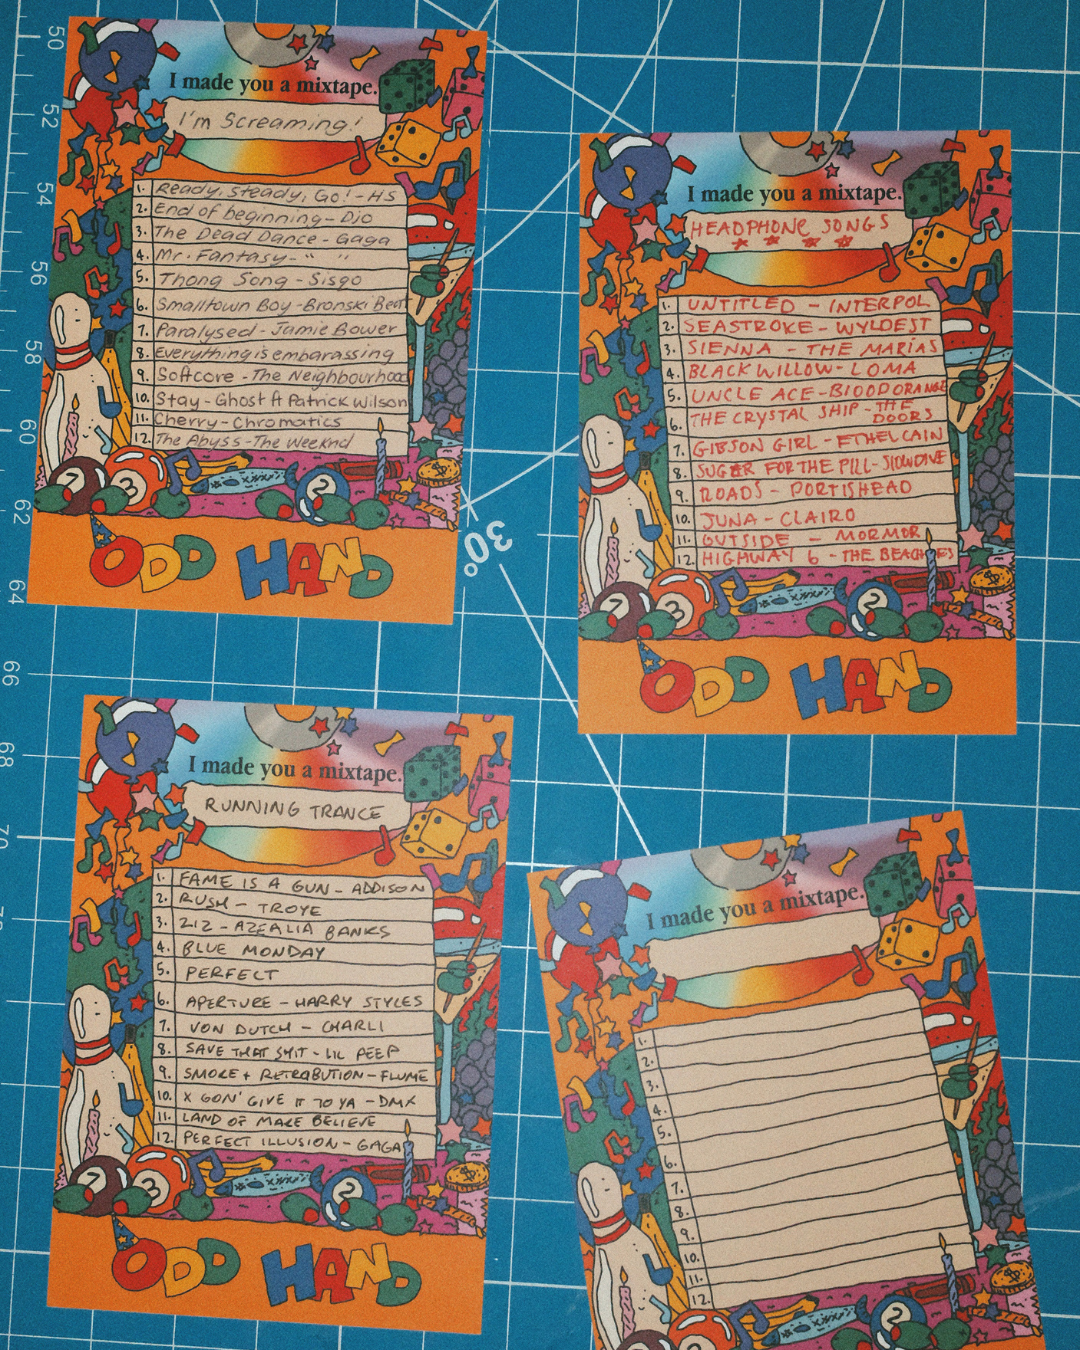 I made you a mixtape.
I'm Screaming!
1. Ready, Steady, Go! - HS
2. End of beginning - Djo
3. The Dead Dance - Gaga
4. Mr. Fantasy - " "
5. Thong Song - Sisqo
6. Smalltown Boy - Bronski Beat
7. Paralysed - Jamie Bower
8. Everything is embarassing
9. Softcore - The Neighbourhood
10. Stay - Ghost ft Patrick Wilson
11. Cherry - Chromatics
12. The Abyss - The Weeknd
3
2
ODD HAND
I made you a mixtape.
HEADPHONE SONGS
1. UNTITLED - INTERPOL
2. SEASTROKE - WYLDEST
3. SIENNA - THE MARÍAS
4. BLACK WILLOW - LOMA
5. UNCLE ACE - BLOOD ORANGE
6. THE CRYSTAL SHIP - THE DOORS
7. GIBSON GIRL - ETHEL CAIN
8. SUGAR FOR THE PILL - SLOWDIVE
9. ROADS - PORTISHEAD
10. JUNA - CLAIRO
11. OUTSIDE - MORMOR
12. HIGHWAY 6 - THE BEACHES
3
2
ODD HAND
I made you a mixtape.
RUNNING TRANCE
1. FAME IS A GUN - ADDISON
2. RUSH - TROYE
3. 212 - AZEALIA BANKS
4. BLUE MONDAY
5. PERFECT
6. APERTURE - HARRY STYLES
7. VON DUTCH - CHARLI
8. SAVE THAT SHIT - LIL PEEP
9. SMOKE + RETRIBUTION - FLUME
10. X GON' GIVE IT TO YA - DMX
11. LAND OF MAKE BELIEVE
12. PERFECT ILLUSION - GAGA
3
2
ODD HAND
I made you a mixtape.
1.
2.
3.
4.
5.
6.
7.
8.
9.
10.
11.
12.
2
50
52
54
56
58
60
62
64
66
68
30°